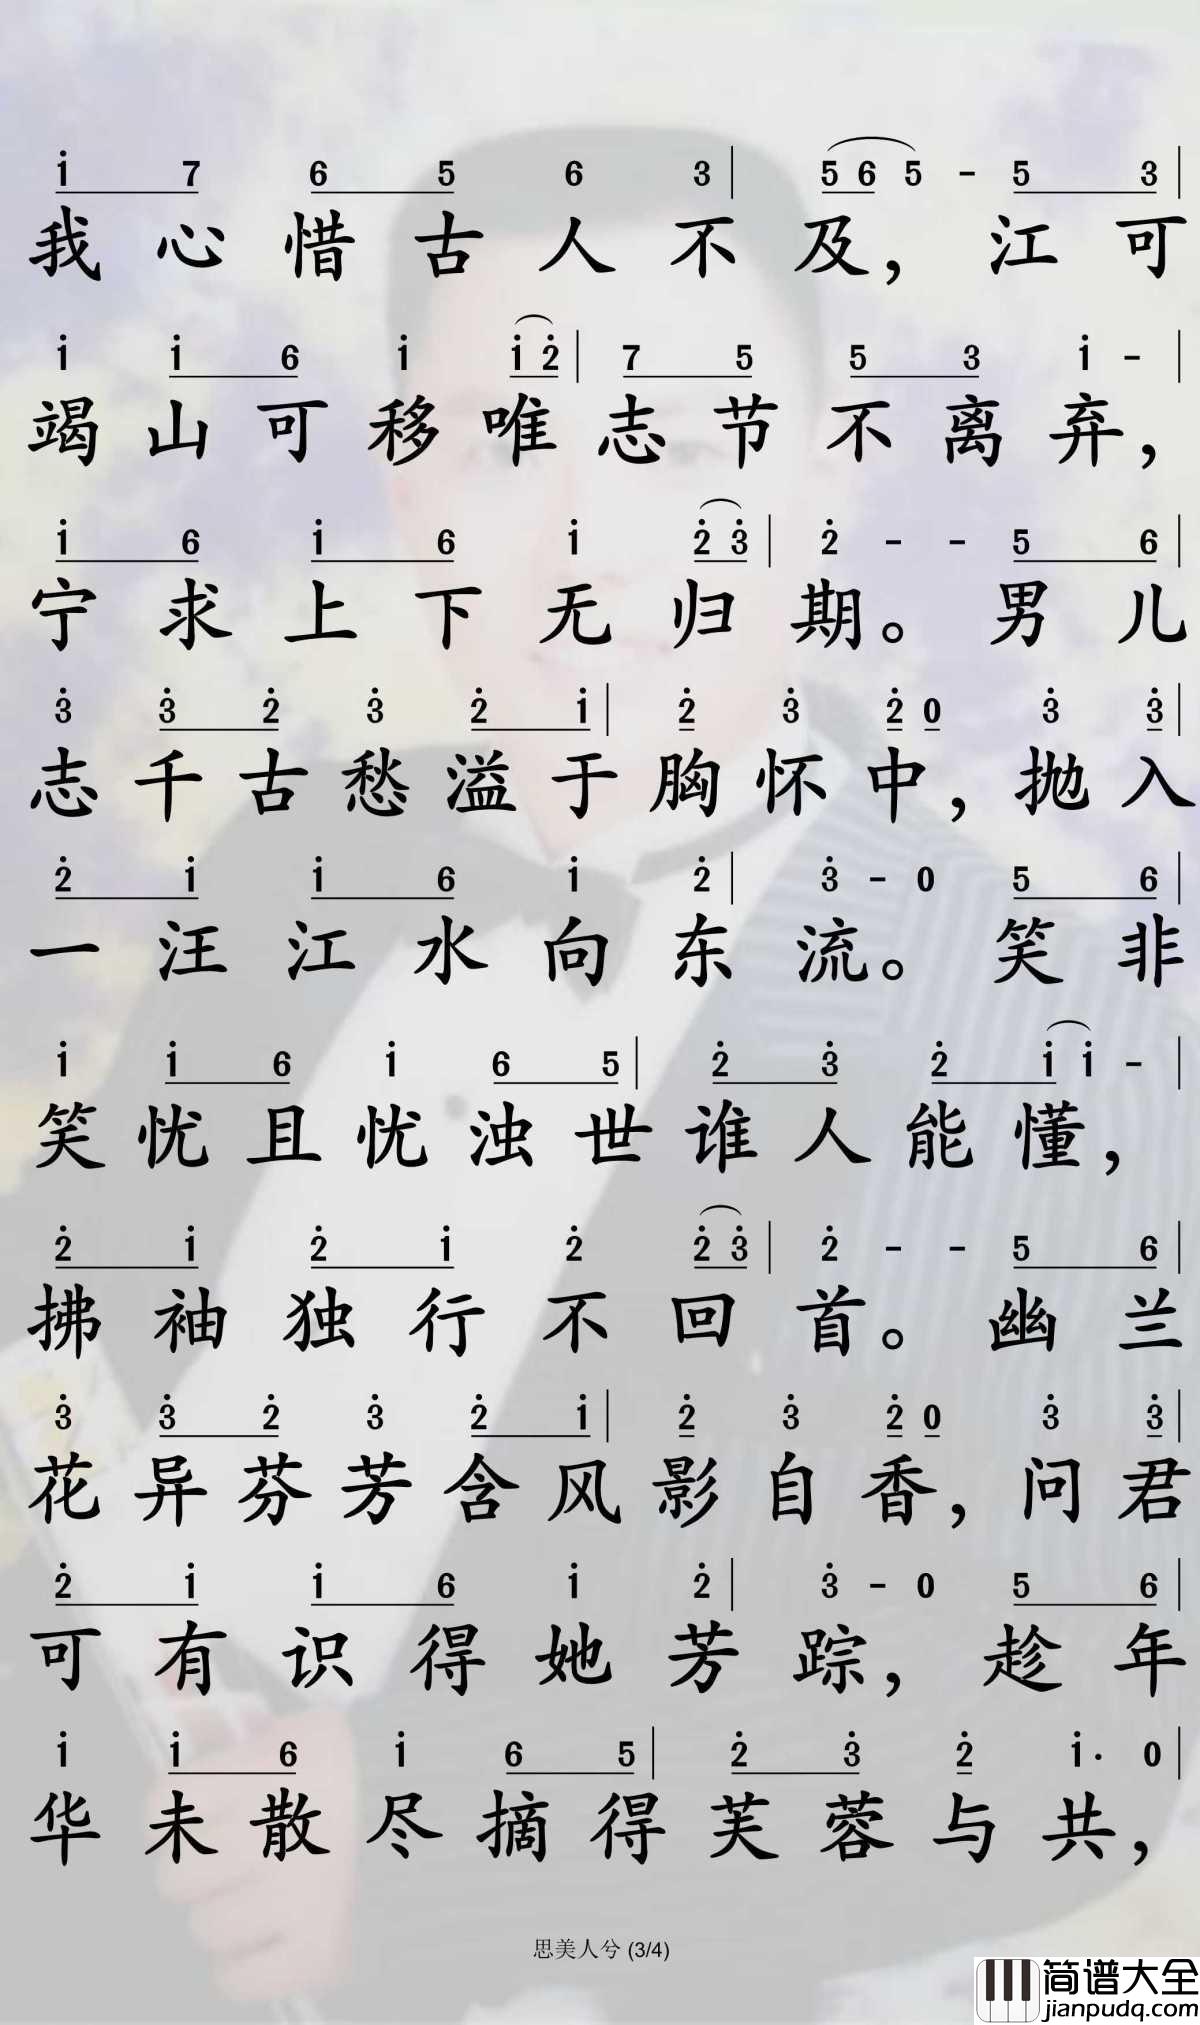 i 7 6 5 6 3 | 5 6 5 - 5 3 |
我心惜古人不及，江可
i i 6 i i 2 | 7 5 5 3 i - |
竭山可移唯志节不离弃，
i 6 i 6 i 2 3 | 2 - - 5 6 |
宁求上下无归期。男儿
3 3 2 3 2 i | 2 3 2 0 3 3 |
志千古愁溢于胸怀中，抛入
2 i i 6 i 2 | 3 - 0 5 6 |
一汪江水向东流。笑非
i i 6 i 6 5 | 2 3 2 i i - |
笑忧且忧浊世谁人能懂，
2 i 2 i 2 2 3 | 2 - - 5 6 |
拂袖独行不回首。幽兰
3 3 2 3 2 i | 2 3 2 0 3 3 |
花异芬芳含风影自香，问君
2 i i 6 i 2 | 3 - 0 5 6 |
可有识得她芳踪，趁年
i i 6 i 6 5 | 2 3 2 i· 0 |
华未散尽摘得芙蓉与共，
思美人兮 (3/4)
简谱大全
jianpudq.com